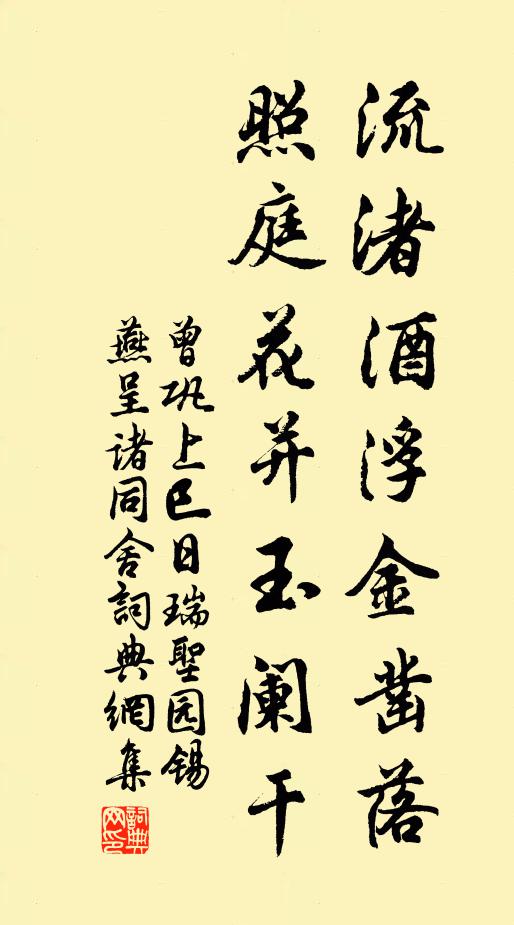 流渚酒浮金凿落
照庭花并玉阑干
曾巩上巳日瑞聖园锡
燕呈诸同舍詞典網集
詞典
网印